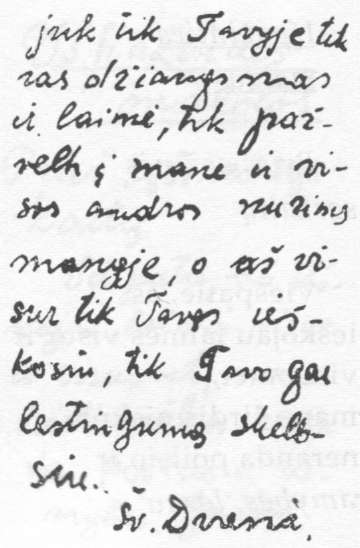 juk tik Tavyje tik
ras džiaugsmas
ir laimė, tik paž-
velk į mane ir vi-
sos audros nurims
manyje, o aš vi-
sur tik Tavęs ieš-
kosiu, tik Tavo gai
lestingumą skelb-
siu.
Šv. Dvasia.